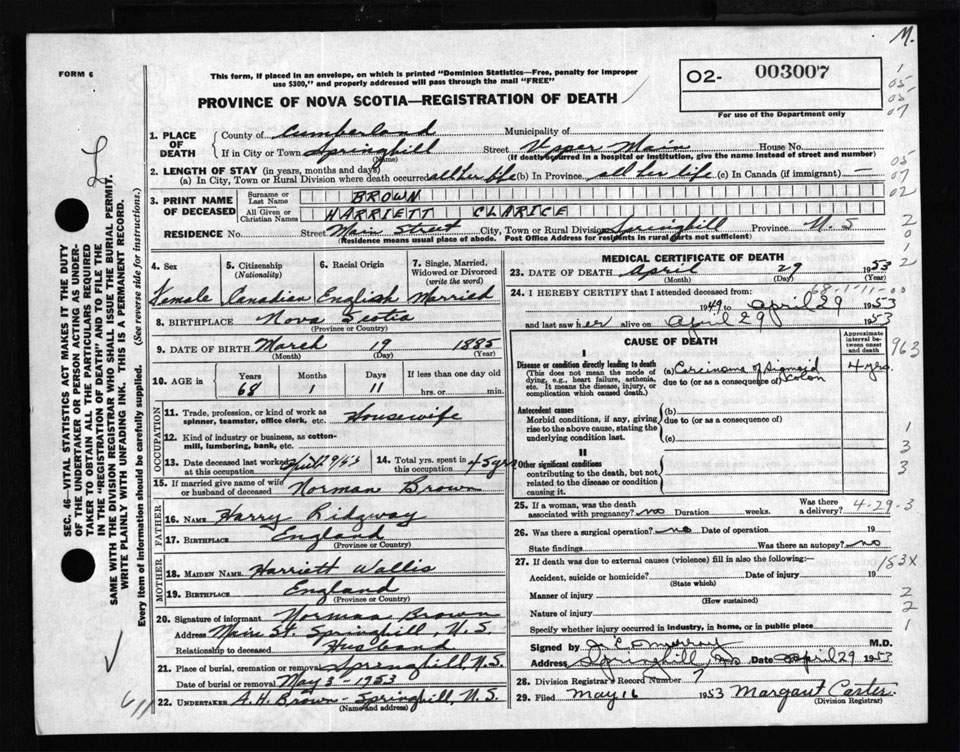 M.
FORM 6
This form, if placed in an envelope, on which is printed "Dominion Statistics—Free, penalty for improper
use $300," and properly addressed will pass through the mail "FREE"
O2- 003007
For use of the Department only
PROVINCE OF NOVA SCOTIA—REGISTRATION OF DEATH
1. PLACE OF DEATH
County of Cumberland Municipality of
If in City or Town Springhill Street Upper Main House No.
(Name) (If death occurred in a hospital or institution, give the name instead of street and number)
2. LENGTH OF STAY (in years, months and days)
(a) In City, Town or Rural Division where death occurred all her life (b) In Province all her life (c) In Canada (if immigrant) —
3. PRINT NAME OF DECEASED
Surname or Last Name BROWN
All Given or Christian Names HARRIETT CLARICE
RESIDENCE No. Street Main Street City, Town or Rural Division Springhill Province N.S
(Residence means usual place of abode. Post Office Address for residents in rural parts not sufficient)
4. Sex 5. Citizenship (Nationality) 6. Racial Origin 7. Single, Married, Widowed or Divorced (write the word)
Female Canadian English Married
8. BIRTHPLACE Nova Scotia
(Province or Country)
9. DATE OF BIRTH March 19 1885
(Month) (Day) (Year)
10. AGE in Years Months Days If less than one day old
68 1 11 hrs. or min.
OCCUPATION
11. Trade, profession, or kind of work as spinner, teamster, office clerk, etc. Housewife
12. Kind of industry or business, as cotton-mill, lumbering, bank, etc.
13. Date deceased last worked at this occupation
14. Total yrs. spent in this occupation 45 yrs
15. If married give name of wife or husband of deceased Norman Brown
FATHER
16. NAME Harry Ridgway
17. BIRTHPLACE England
(Province or Country)
MOTHER
18. MAIDEN NAME Harriett Wallis
19. BIRTHPLACE England
(Province or Country)
20. Signature of informant Norman Brown
Address Main St. Springhill, N.S.
Relationship to deceased Husband
21. Place of burial, cremation or removal Springhill, N.S.
Date of burial or removal May 3 - 1953
22. UNDERTAKER A.H. Brown - Springhill, N.S.
(Name and address)
MEDICAL CERTIFICATE OF DEATH
23. DATE OF DEATH April 29 1953
(Month) (Day)
68-1-11-00
24. I HEREBY CERTIFY that I attended deceased from:
1949 to April 29 1953
and last saw her alive on April 29 1953
CAUSE OF DEATH
Approximate interval between onset and death
I
Disease or condition directly leading to death
(This does not mean the mode of dying, e.g., heart failure, asthenia, etc. It means the disease, injury, or complication which caused death.)
(a) Carcinoma of Sigmoid Colon 4 yrs.
due to (or as a consequence of)
Antecedent causes
Morbid conditions, if any, giving rise to the above cause, stating the underlying condition last.
(b)
due to (or as a consequence of)
(c)
II
Other significant conditions
contributing to the death, but not related to the disease or condition causing it.
25. If a woman, was the death associated with pregnancy? no Duration weeks. Was there a delivery?
4-29-3
26. Was there a surgical operation? no Date of operation 19
State findings Was there an autopsy? no
27. If death was due to external causes (violence) fill in also the following:—
153X
Accident, suicide or homicide? Date of injury 19
(State which)
Manner of injury
(How sustained)
Nature of injury
Specify whether injury occurred in industry, in home, or in public place
Signed by M.D.
Address Springhill, NS Date April 29 1953
28. Division Registrar's Record Number 7
29. Filed May 16 1953 Margaret Carter
(Division Registrar)
SEC. 46—VITAL STATISTICS ACT MAKES IT THE DUTY
OF THE UNDERTAKER OR PERSON ACTING AS UNDER-
TAKER TO OBTAIN ALL THE PARTICULARS REQUIRED
IN THE "REGISTRATION OF DEATH" AND TO FILE THE
SAME WITH THE DIVISION REGISTRAR WHO SHALL ISSUE THE BURIAL PERMIT.
WRITE PLAINLY WITH UNFADING INK. THIS IS A PERMANENT RECORD.
Every item of information should be carefully supplied. (See reverse side for instructions.)
1
05
05
07
05
07
02
2
0
1
2
963
1
3
3
2
2
1